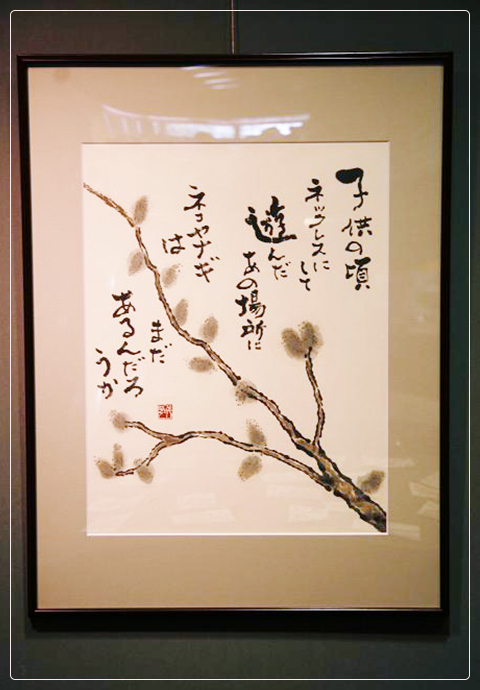 子供の頃
ネックレスに
して
遊んだ
あの場所に
ネコヤナギ
は
まだ
あるんだろ
うか